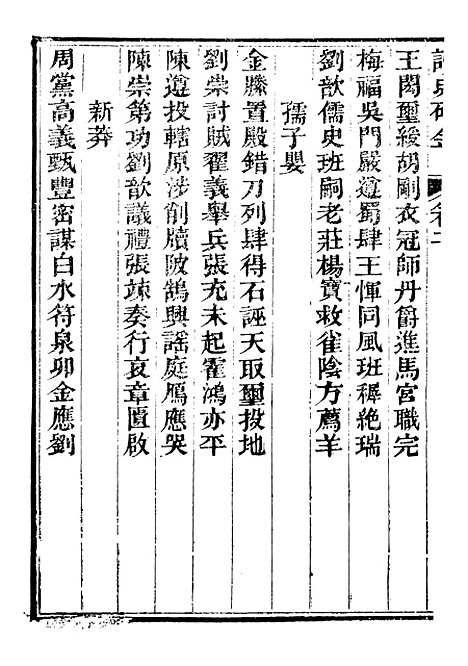 王閎璽綬胡剛衣冠師丹爵進馬宮職完
梅福吳門嚴遵蜀肆王惲同風班穉絶瑞
劉歆儒史班嗣老莊楊寶救雀陰方薦羊
孺子嬰
金縢置殿錯刀列肆得石誣天取璽投地
劉崇討賊翟義舉兵張充未起霍鴻亦平
陳遵投轄原涉削牘陂鵠興謠庭鴈應哭
陳崇第功劉歆議禮張竦奏行哀章匱啟
新莽
周黨高義甄豐密謀白水符泉卯金應劉